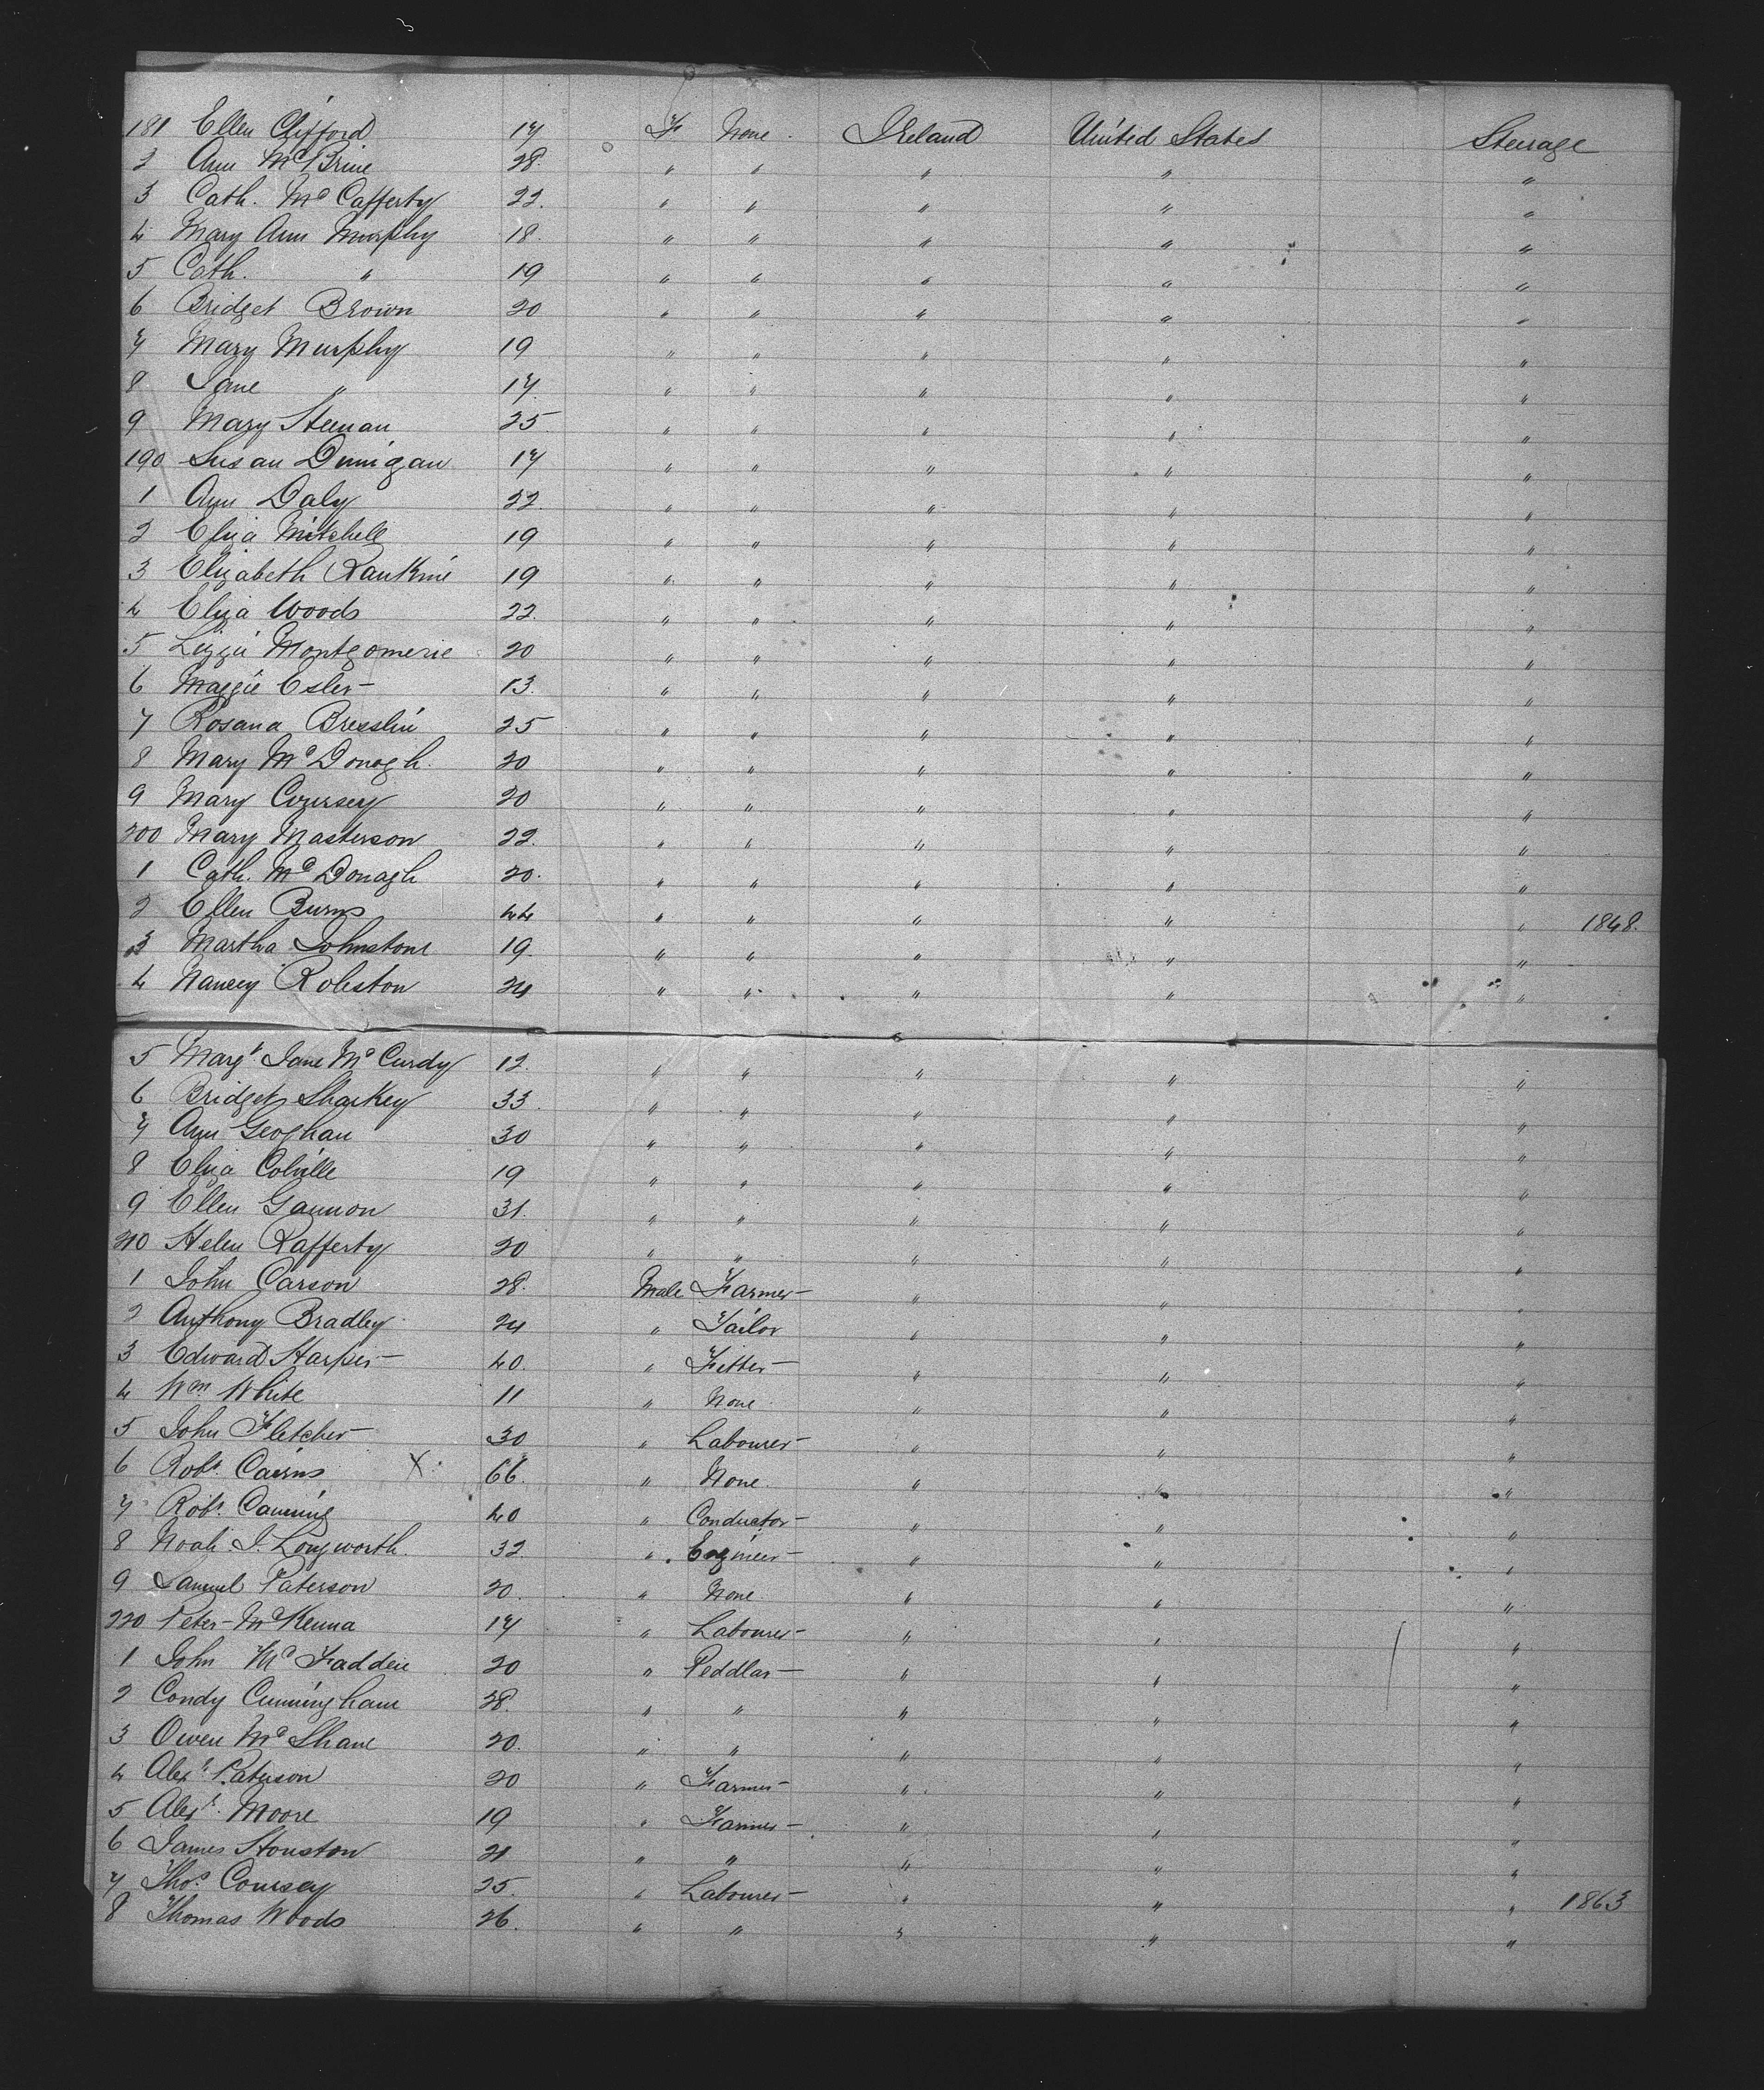 181 Ellen Clifford 17 F None Ireland United States Steerage
2 Ann McBrine 28 " " " " "
3 Cath. McCafferty 22 " " " " "
4 Mary Ann Murphy 18 " " " " "
5 Cath. " 19 " " " " "
6 Bridget Brown 20 " " " " "
7 Mary Murphy 19 " " " " "
8 Jane " 17 " " " " "
9 Mary Heenan 25 " " " " "
190 Susan Dunigan 17 " " " " "
1 Ann Daly 22 " " " " "
2 Eliza Mitchell 19 " " " " "
3 Elizabeth Rankine 19 " " " " "
4 Eliza Woods 22 " " " " "
5 Lizzie Montgomerie 20 " " " " "
6 Maggie Esler 13 " " " " "
7 Rosana Bresslin 25 " " " " "
8 Mary McDonogh 20 " " " " "
9 Mary Coursey 20 " " " " "
200 Mary Masterson 22 " " " " "
1 Cath. McDonagh 20 " " " " "
2 Ellen Burns 44 " " " " " 1848.
3 Martha Johnstone 19 " " " " "
4 Nancy Rolston 24 " " " " "
5 Margt. Jane McCurdy 12 " " " " "
6 Bridget Sharkey 33 " " " " "
7 Ann Geoghan 30 " " " " "
8 Eliza Colville 19 " " " " "
9 Ellen Gannon 31 " " " " "
210 Helen Rafferty 20 " " " " "
1 John Carson 28 Male Farmer " " "
2 Anthony Bradley 24 " Tailor " " "
3 Edward Harper 40 " Fitter " " "
4 Wm White 11 " None " " "
5 John Fletcher 30 " Labourer " " "
6 Robt. Cairns X 66 " None " " "
7 Robt. Canning 40 " Conductor " " "
8 Noah. J. Longworth 32 " Engineer " " "
9 Samuel Paterson 20 " None " " "
220 Peter McKenna 17 " Labourer " " "
1 John McFadden 20 " Peddlar " " "
2 Condy Cunningham 28 " " " " "
3 Owen McShane 20 " " " " "
4 Alexr Paterson 20 " Farmer " " "
5 Alexr. Moore 19 " Farmer " " "
6 James Houston 21 " " " " "
7 Thos. Coursey 25 " Labourer " " " 1863
8 Thomas Woods 26 " " " " "